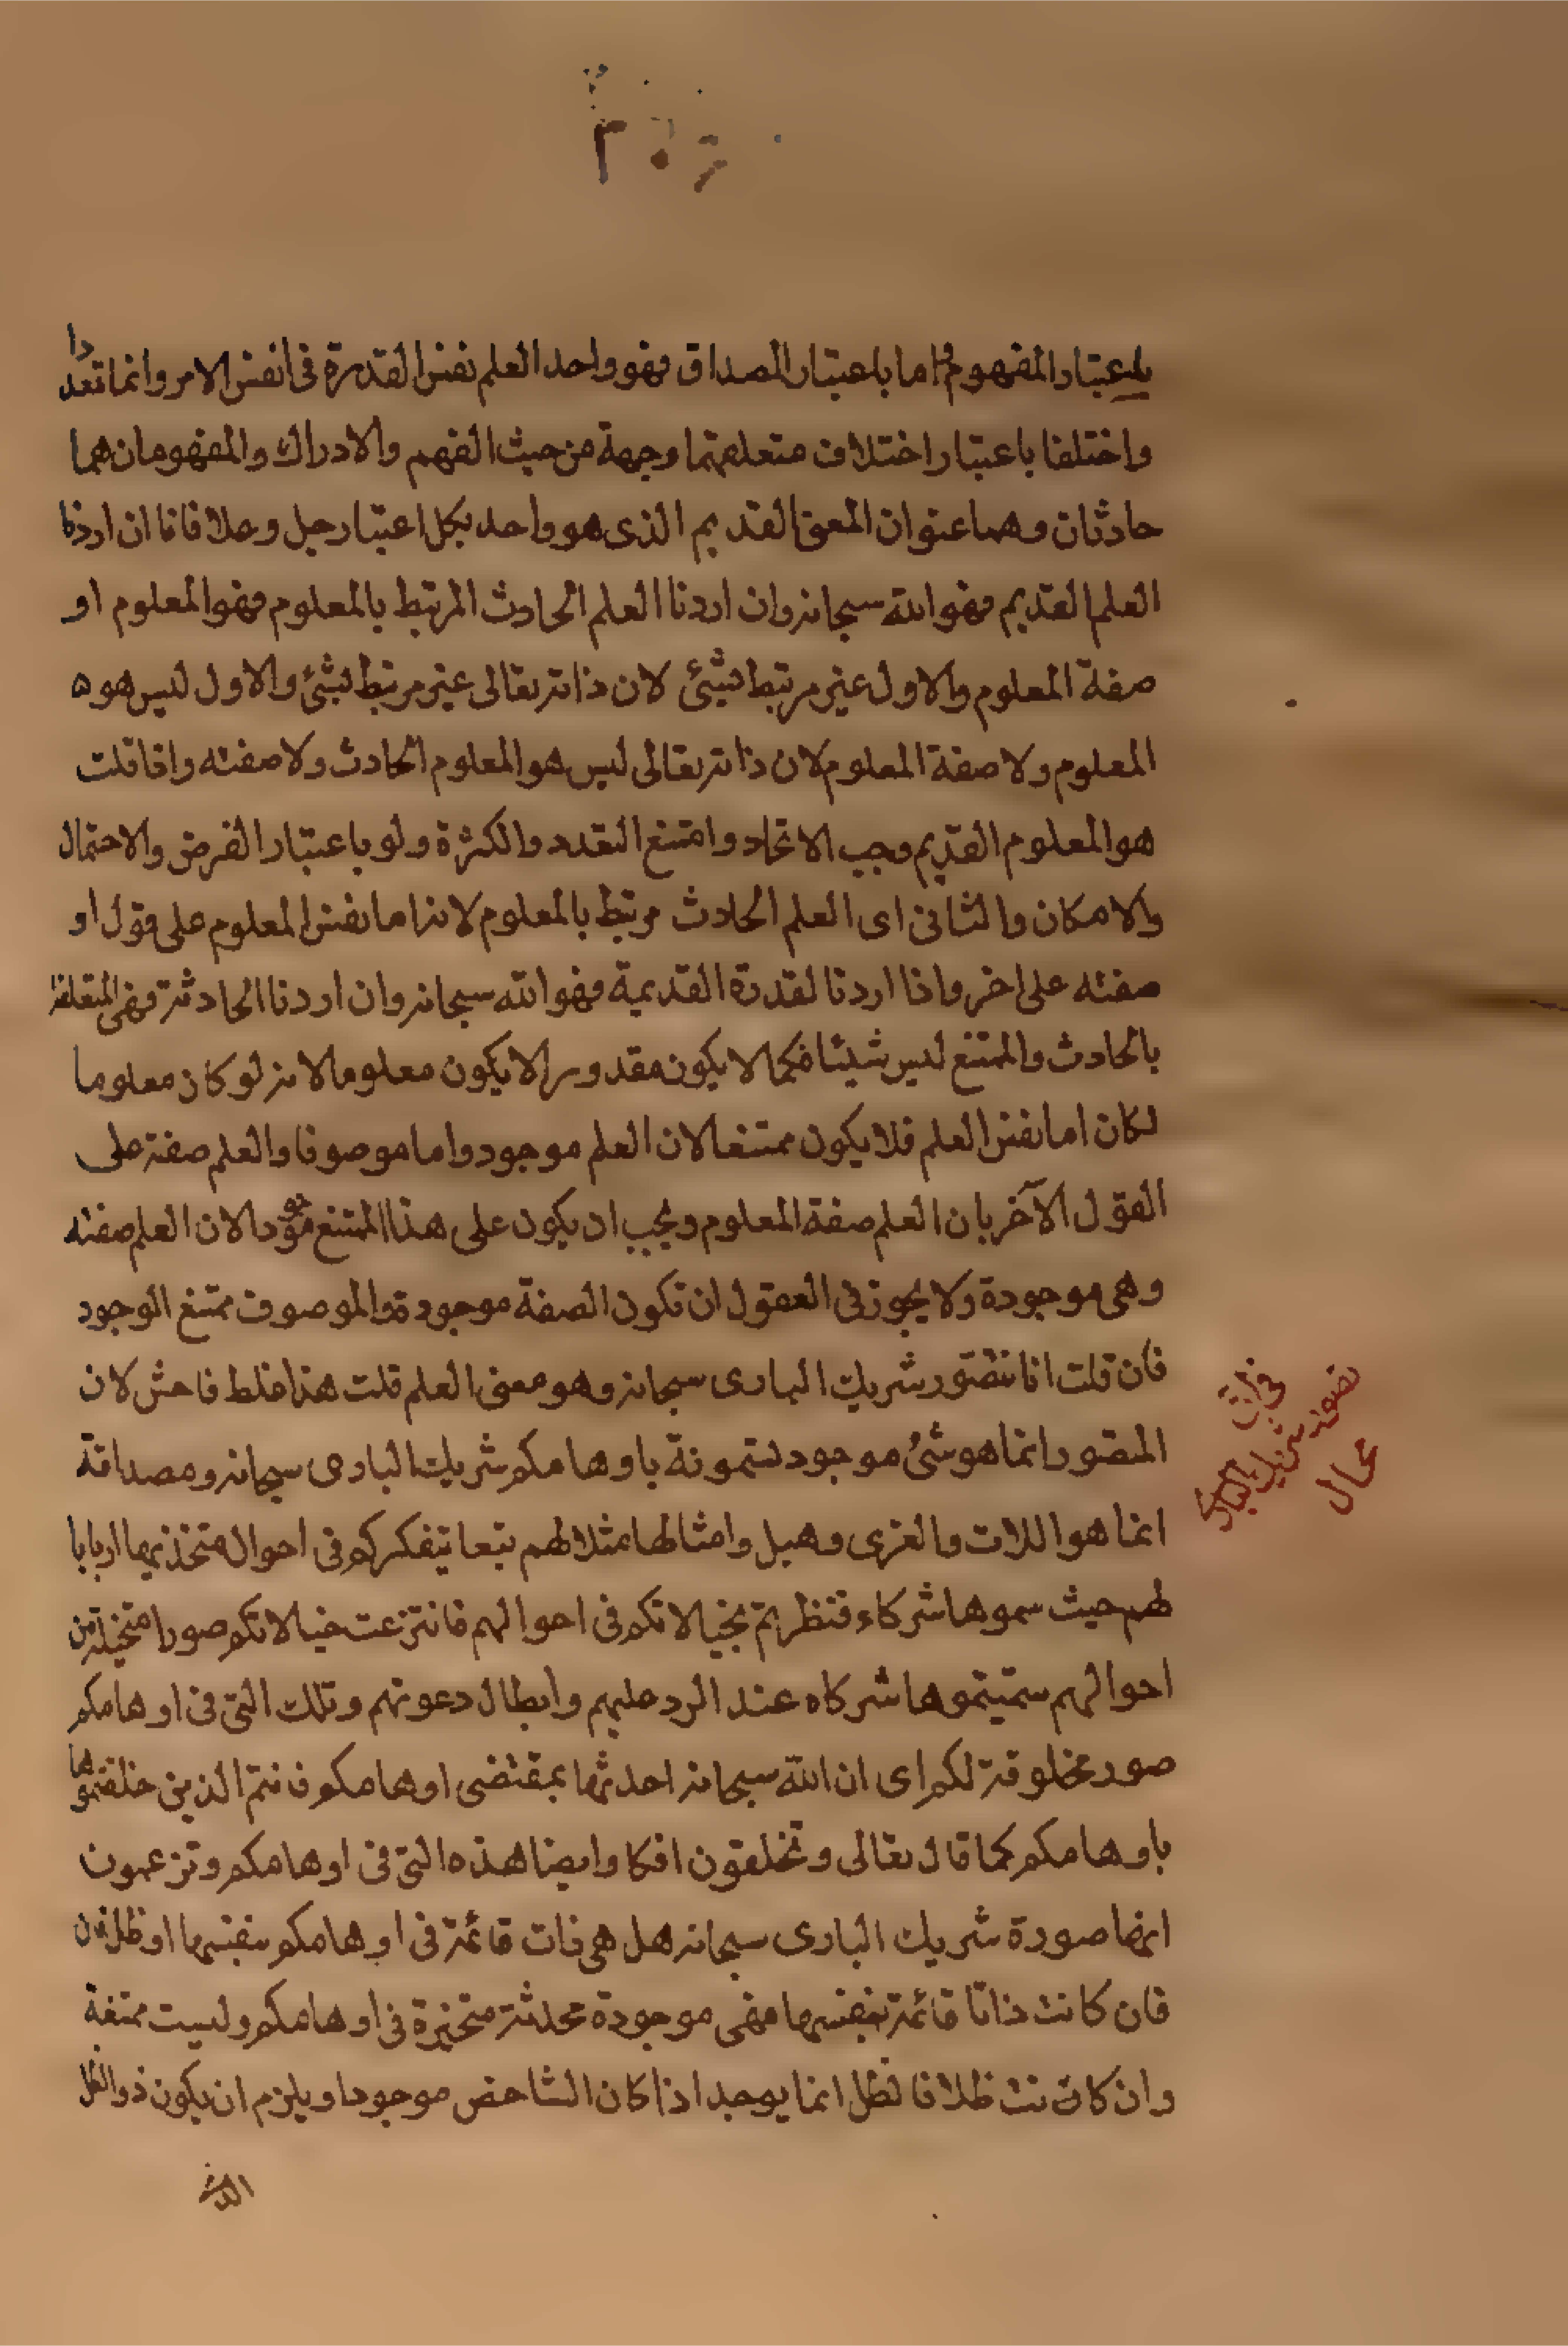 باعتبار المفهوم واما باعتبار المصداق فهو واحد العلم نفس القدرة في نفس الامر وانما تعددا
واختلفا باعتبار اختلاف متعلقهما وجهة من حيث الفهم والادراك والمفهومان هما
حادثان وهما عنوان المعنى القديم الذى هو واحد بكل اعتبار جل وعلا فانا ان اردنا
العلم القديم فهو الله سبحانه وان اردنا العلم الحادث المرتبط بالمعلوم فهو المعلوم او
صفة المعلوم والاول غير مرتبط بشئ لان ذاته تعالى غير مرتبط بشئ والاول ليس هو
المعلوم ولا صفة المعلوم لان ذاته تعالى ليس هو المعلوم الحادث ولا صفته واذا قلت
هو المعلوم القديم وجب الاتحاد وامتنع التعدد والكثرة ولو باعتبار الفرض والاحتمال
والامكان والثانى اى العلم الحادث مرتبط بالمعلوم لانه اما نفس المعلوم على قول او
صفته على اخر واذا اردنا لقدرة القديمة فهو الله سبحانه وان اردنا الحادثة فهى المتعلقة
بالحادث والممتنع ليس شيئا فكما لا يكون مقدورا لا يكون معلوما لانه لو كان معلوما
لكان اما نفس العلم فلا يكون ممتنعا لان العلم موجود واما موصوفا والعلم صفة على
القول الآخر بان العلم صفة المعلوم ويجب ان يكون على هذا الممتنع موجودا لان العلم صفته
وهى موجودة ولا يجوز فى العقول ان تكون الصفة موجودة والموصوف ممتنع الوجود
فان قلت انا نتصور شريك البارى سبحانه وهو معنى العلم قلت هذا غلط فاحش لان
المتصور انما هو شئ موجود تسمونة باوهامكم شريك البارى سبحانه ومصداقة
انما هو اللات والعزى وهبل وامثالها مثلا لهم تبعا بتفكركم فى احوال متخذيها اربابا
لهم حيث سموها شركاء فنظرتم بخيالاتكم فى احوالهم فانتزعت خيالاتكم صورا متخيلة من
احوالهم سميتموها شركاء عند الرد عليهم وابطال دعوتهم وتلك التى فى اوهامكم
صور مخلوقة لكم اى ان الله سبحانه احدثها بمقتضى اوهامكم فانتم الذين خلقتموها
باوهامكم كما قال تعالى وتخلقون افكا وايضا هذه التى فى اوهامكم وتزعمون
انها صورة شريك البارى سبحانه هل هى ذات قائمة فى اوهامكم بنفسها او ظل
فان كانت ذاتا قائمة بنفسها فهى موجودة محدثة متحيزة فى اوهامكم وليست ممتنعة
وان كانت ظلا فالظل انما يوجد اذا كان الشاخص موجودا ويلزم ان يكون ذو الظل
فى ان
تصور شريك البارى
محال